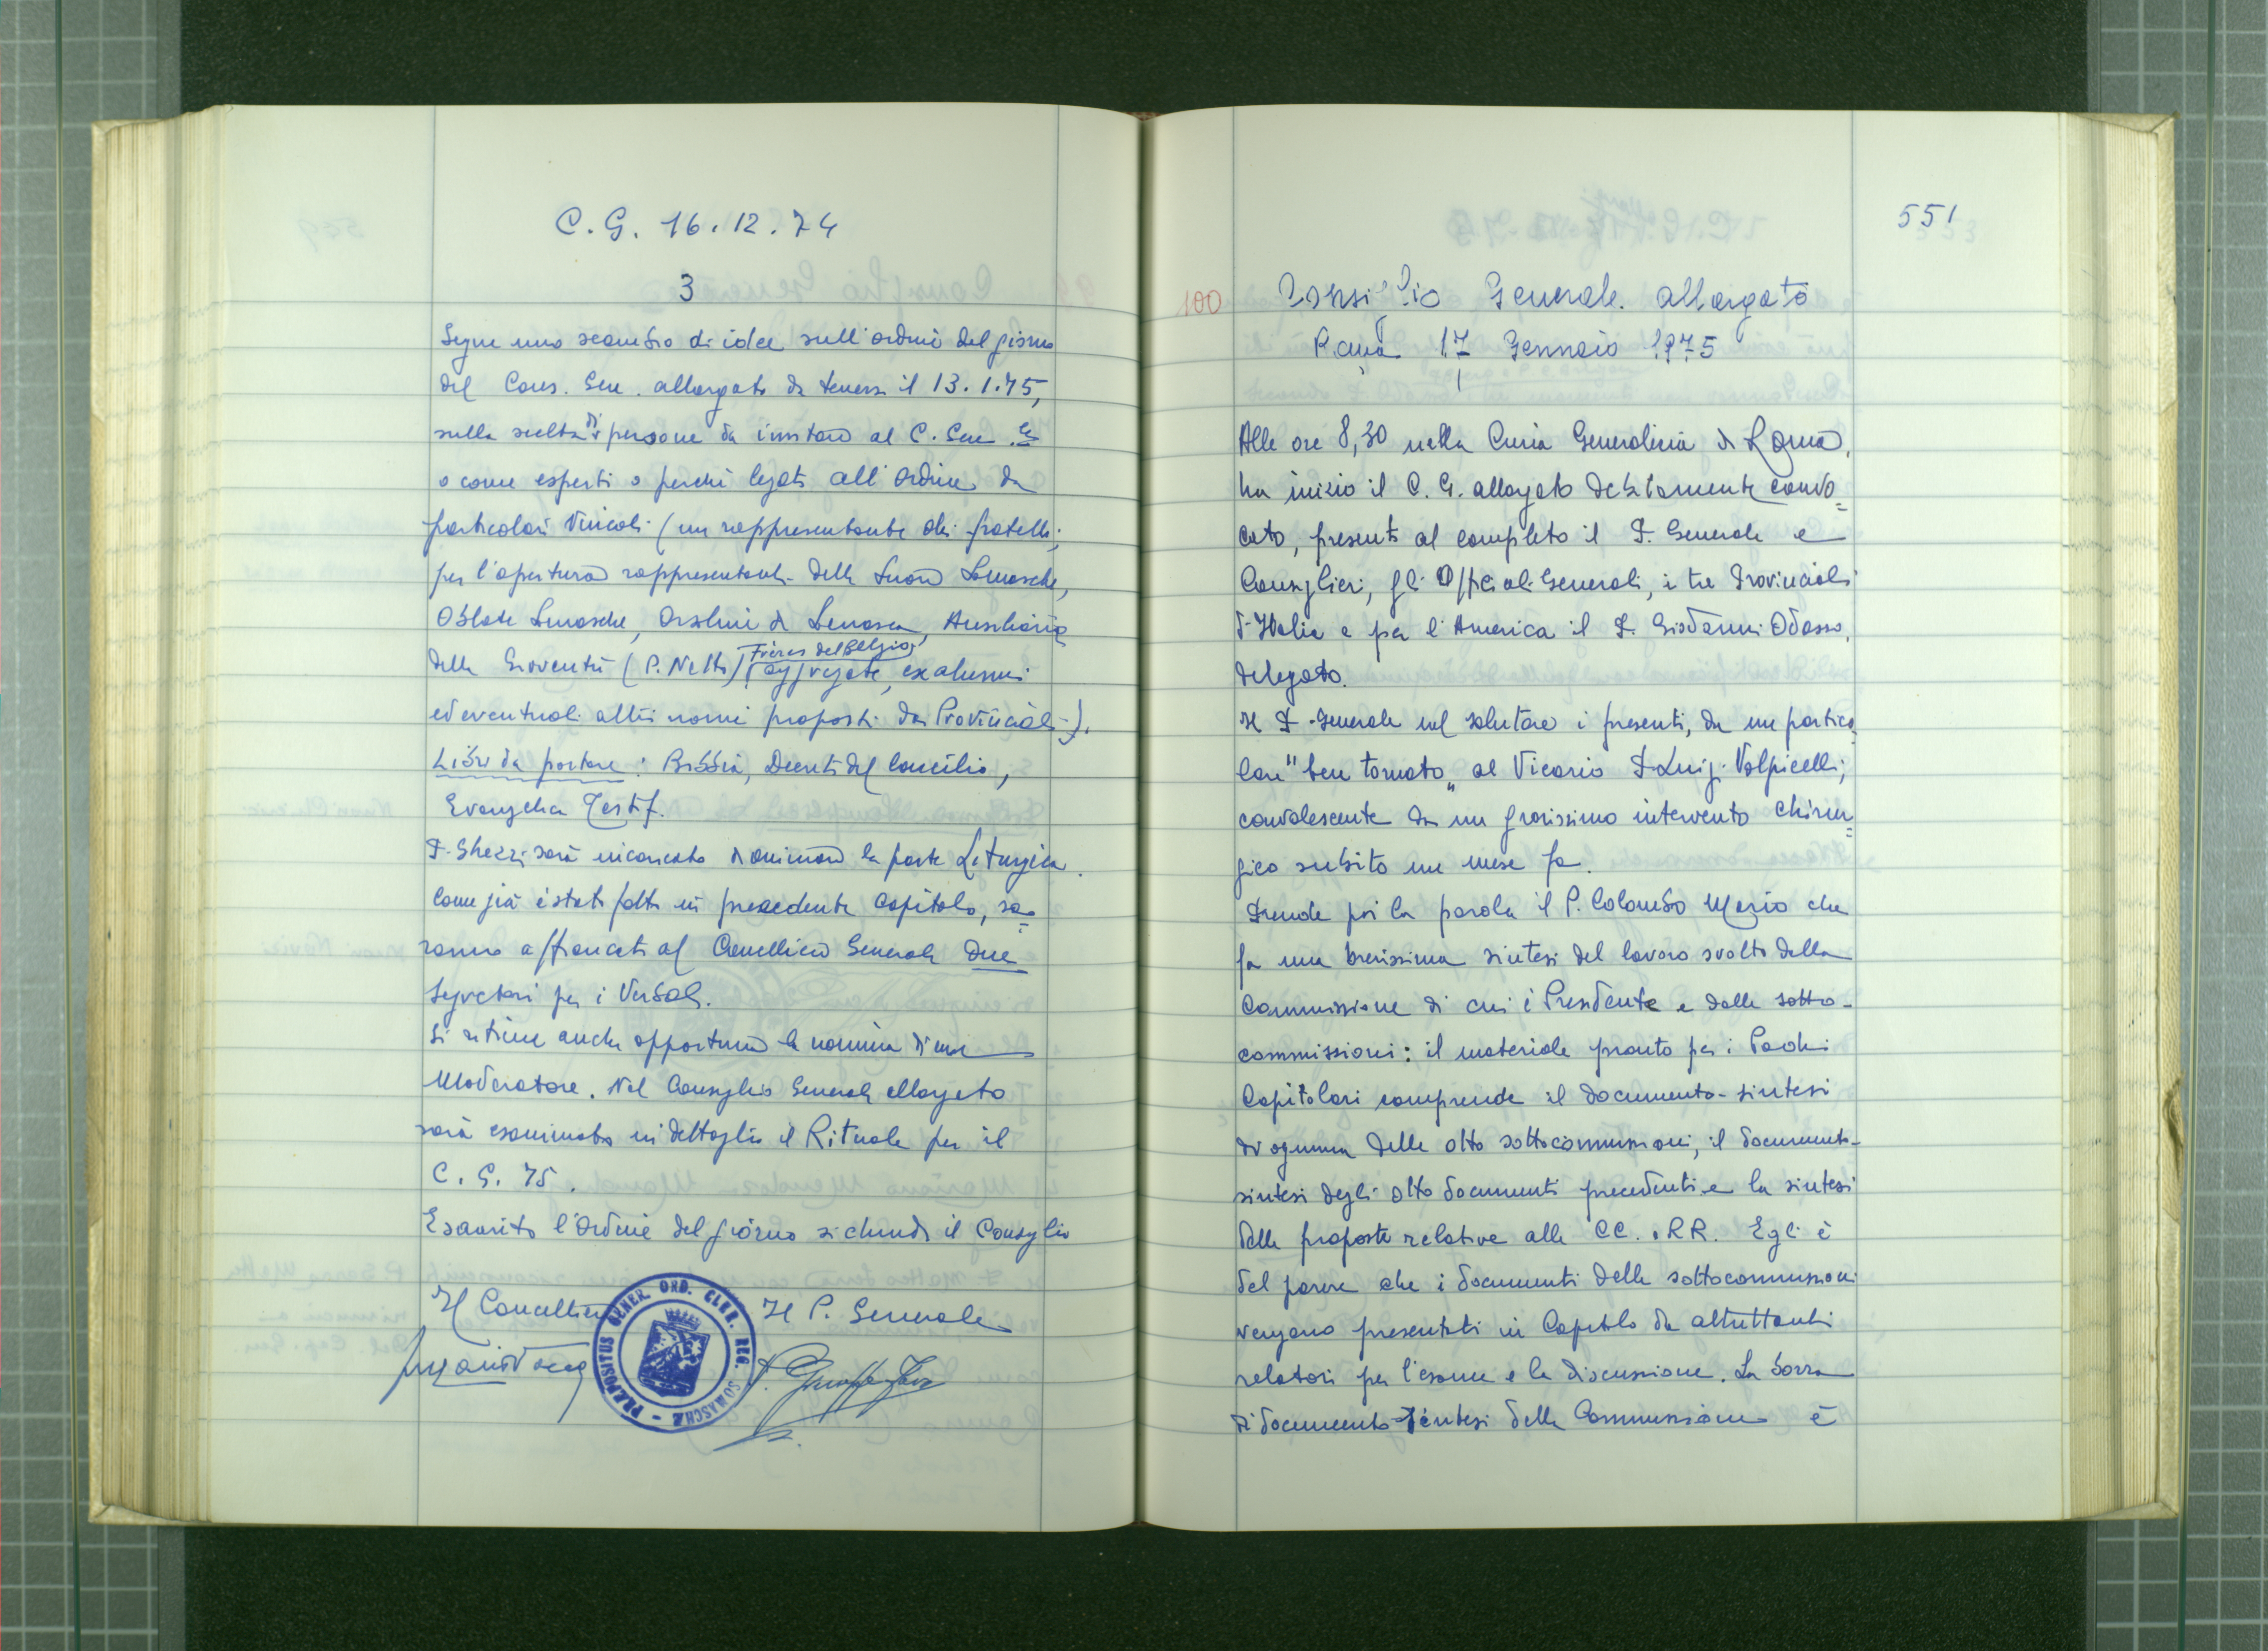 C. G. 16.12.74
3
Segue uno scambio di idee sull'ordine del giorno
del Cons. Gen. allargato da tenersi il 13.1.75,
sulla scelta di persone da invitare al C. Gen.
o come esperti o perché legati all'Ordine da
particolari vincoli (un rappresentante dei fratelli;
per l'apertura rappresentanti delle Suore Somasche,
Oblate Somasche, Orsoline di Somasca, Ausiliarie
della Gioventù (P. Netto), Frères del Belgio, aggregati, exalunni
ed eventuali altri nomi proposti dai Provinciali).
Libri da portare: Bibbia, Decreti del Concilio,
Evangelica Testif.
P. Ghezzi sarà incaricato di animare la parte Liturgica.
Come già è stato fatto in precedente Capitolo, sa=
ranno affiancati al Cancelliere Generale due
Segretari per i Verbali.
Si ritiene anche opportuna la nomina di un
Moderatore. Nel Consiglio Generale allargato
sarà esaminato in dettaglio il Rituale per il
C. G. 75.
Esaurito l'Ordine del giorno si chiude il Consiglio
Il Cancelliere Il P. Generale
PRÆPOSITUS GENER. ORD. CLER. REG. SOMASCHÆ
551
100 Consiglio Generale allargato
Roma 17 Gennaio 1975
Alle ore 8,30 nella Curia Generalizia di Roma,
ha inizio il C. G. allargato debitamente convo=
cato, presenti al completo il P. Generale e
Consiglieri, gli Officiali Generali, i tre Provinciali
d'Italia e per l'America il P. Giovanni Odasso,
delegato.
Il P. Generale nel salutare i presenti, da un partico=
lare "ben tornato" al Vicario P. Luigi Volpicelli,
convalescente da un gravissimo intervento chirur=
gico subito un mese fa.
Prende poi la parola il P. Colombo Mario che
fa una brevissima sintesi del lavoro svolto dalla
Commissione di cui è Presidente e dalle sotto-
commissioni: il materiale pronto per i Padri
Capitolari comprende il documento-sintesi
di ognuna delle otto sottocommissioni, il documento-
sintesi degli otto documenti precedenti e la sintesi
delle proposte relative alle CC. e RR. Egli è
del parere che i documenti delle sottocommissioni
vengano presentati in Capitolo da altrettanti
relatori per l'esame e la discussione. La bozza
di documento-sintesi della Commissione è